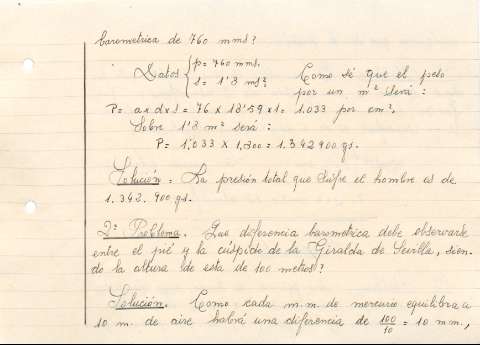 barometrica de 760 mms?
Datos { p = 760 mms.
s = 1'3 ms²
Como sé que el peso
por un m² será:
P = a x d x s = 76 x 13'59 x 1 = 1.033 por cm².
Sobre 1'3 m² será:
P = 1.033 x 1.300 = 1.342900 gs.
Solución = La presión total que sufre el hombre es de
1.342.900 gs.
2º Problema. Que diferencia barometrica debe observarse
entre el pié y la cúspide de la Giralda de Sevilla, sien-
do la altura de esta de 100 metros?
Solución. Como cada m.m. de mercurio equilibra a
10 m. de aire habrá una diferencia de 100/10 = 10 mm.,